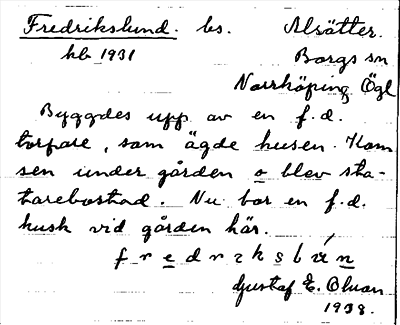 Fredrikslund. bs. Alsätter.
hb 1931 Borgs sn
Norrköping Ögl
Byggdes upp av en f.d.
torpare, som ägde husen. Kom
sen under gården o blev sta-
tarebostad. Nu bor en f.d.
kusk vid gården här.
fredrikslún
Gustaf E. Olsson
1938.